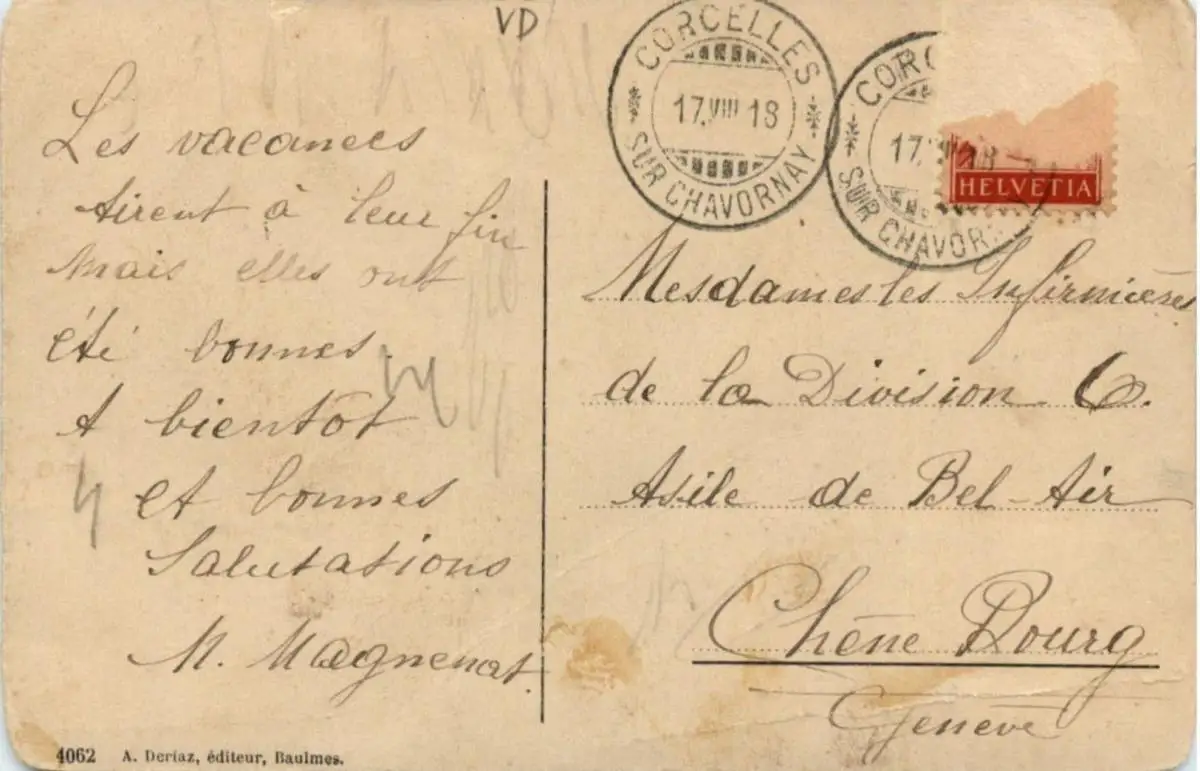 VD
CORCELLES
17.VIII 18
SUR CHAVORNAY
CORC
17.VIII 18
SUR CHAVORN
HELVETIA
Les vacances
tirent à leur fin
mais elles ont
été bonnes.
A bientôt
et bonnes
Salutations
M. Magnenat.
Mesdames les Infirmières
de la Division 6.
Asile de Bel-Air
Chêne Bourg
Genève
4062 A. Deriaz, éditeur, Baulmes.